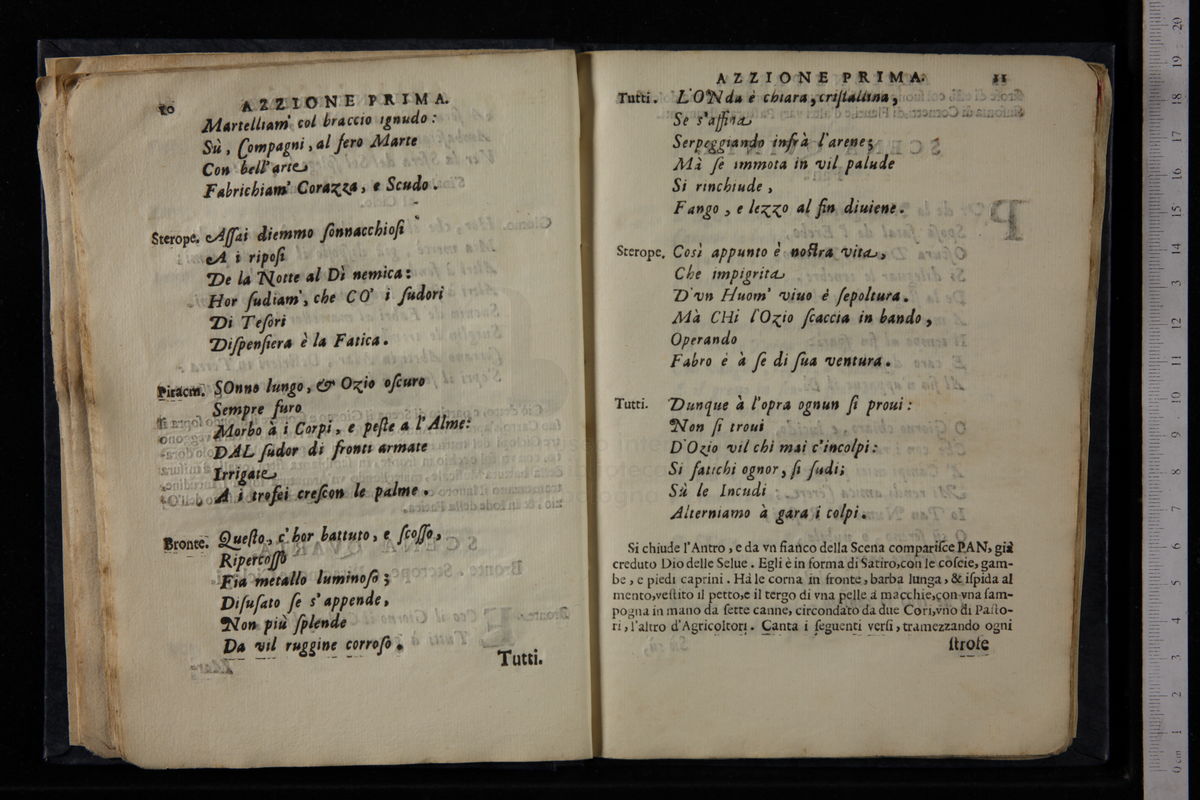 10 AZZIONE PRIMA.
Martelliam' col braccio ignudo:
Sù, Compagni, al fero Marte
Con bell'arte
Fabrichiam' Corazza, e Scudo.
Sterope. Aſſai diemmo ſonnacchioſi
A i ripoſi
De la Notte al Dì nemica:
Hor ſudiam', che CO' i ſudori
Di Teſori
Diſpenſiera è la Fatica.
Piracm. SOnno lungo, & Ozio oſcuro
Sempre furo
Morbo à i Corpi, e peſte a l'Alme:
DAL ſudor di fronti armate
Irrigate
A i trofei creſcon le palme.
Bronte. Queſto, c'hor battuto, e ſcoſſo,
Ripercoſſo
Fia metallo luminoſo;
Diſuſato ſe s'appende,
Non più ſplende
Da vil ruggine corroſo.
Tutti.
AZZIONE PRIMA. 11
Tutti. L'ONda è chiara, criſtallina,
Se s'affina
Serpeggiando infrà l'arene;
Mà ſe immota in vil palude
Si rinchiude,
Fango, e lezzo al fin diuiene.
Sterope. Così appunto è noſtra vita,
Che impigrita
D'vn Huom' viuo è ſepoltura.
Mà CHi l'Ozio ſcaccia in bando,
Operando
Fabro è à ſe di ſua ventura.
Tutti. Dunque à l'opra ognun ſi proui:
Non ſi troui
D'Ozio vil chi mai c'incolpi:
Si fatichi ognor, ſi ſudi;
Sù le Incudi
Alterniamo à gara i colpi.
Si chiude l'Antro, e da vn fianco della Scena compariſce PAN, già
creduto Dio delle Selue. Egli è in forma di Satiro, con le coſcie, gam-
be, e piedi caprini. Hà le corna in fronte, barba lunga, & iſpida al
mento, veſtito il petto, e il tergo di vna pelle à macchie, con vna ſam-
pogna in mano da ſette canne, circondato da due Cori, vno di Paſto-
ri, l'altro d'Agricoltori. Canta i ſeguenti verſi, tramezzando ogni
ſtrofe